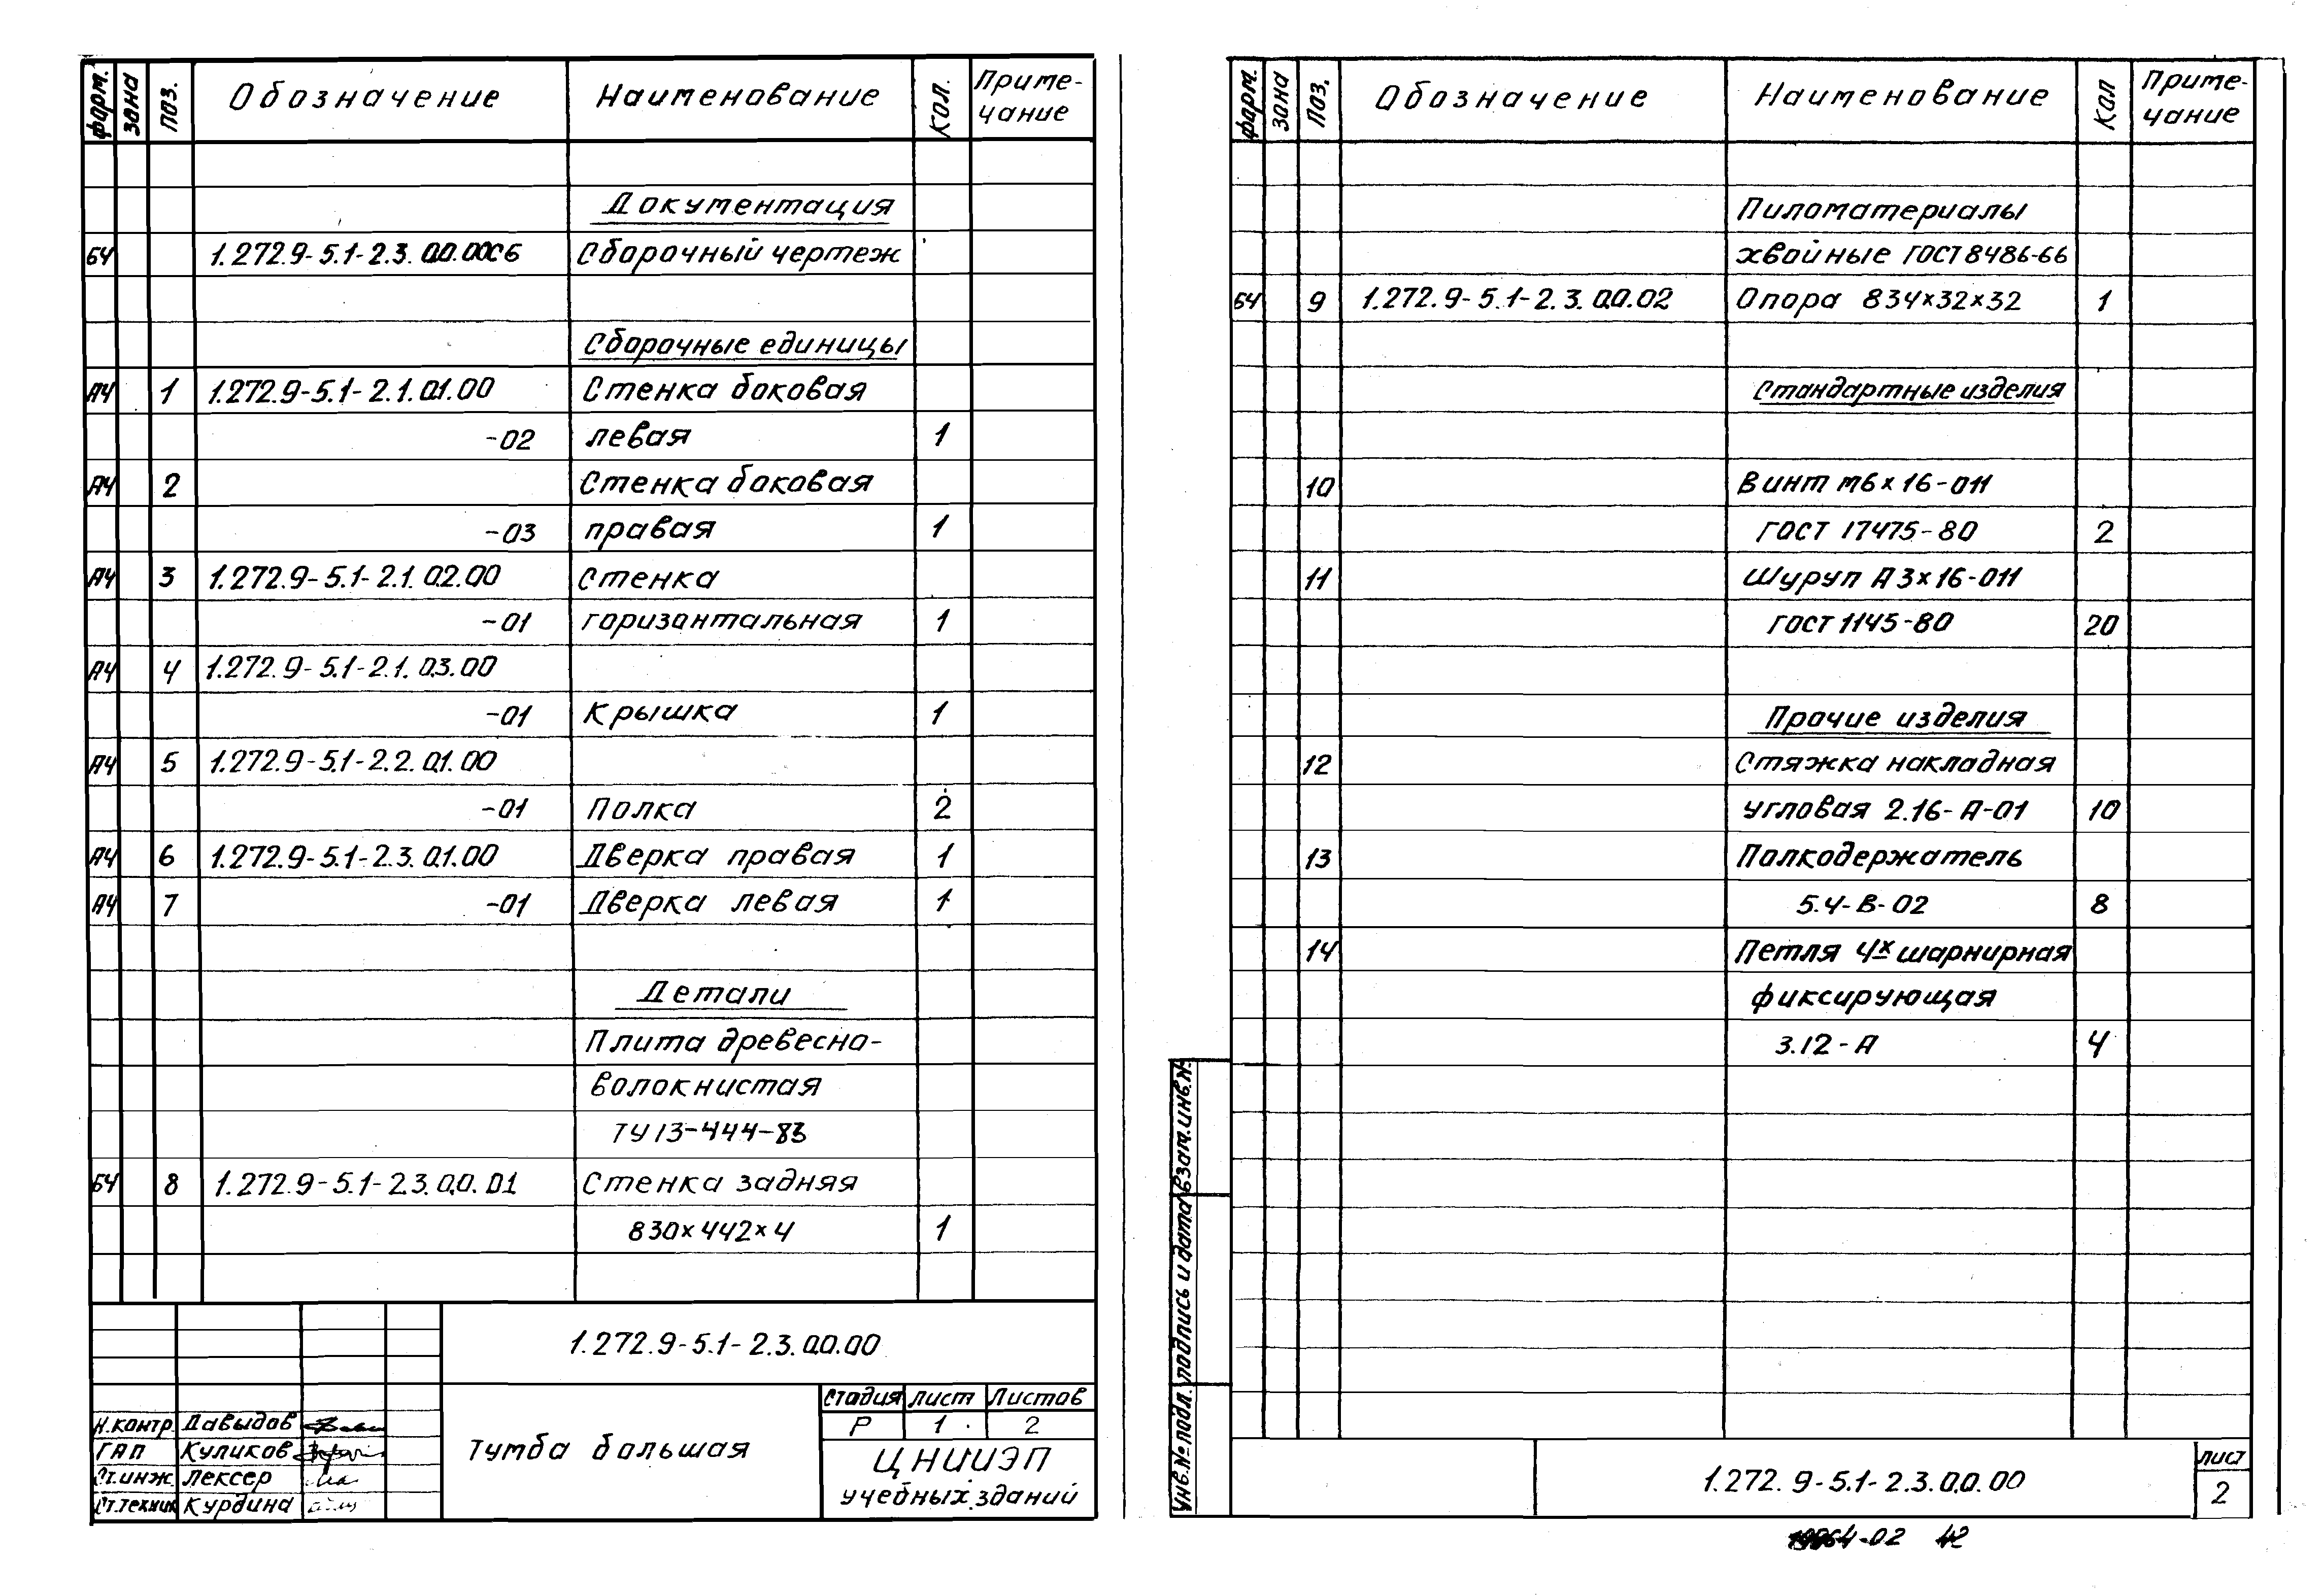 форм. зона поз. Обозначение Наименование кол. Приме-
чание
Документация
БЧ 1.272.9-5.1-2.3.00.00СБ Сборочный чертеж
Сборочные единицы
А4 1 1.272.9-5.1-2.1.01.00 Стенка боковая
-02 левая 1
А4 2 Стенка боковая
-03 правая 1
А4 3 1.272.9-5.1-2.1.02.00 Стенка
-01 горизонтальная 1
А4 4 1.272.9-5.1-2.1.03.00
-01 Крышка 1
А4 5 1.272.9-5.1-2.2.01.00
-01 Полка 2
А4 6 1.272.9-5.1-2.3.01.00 Дверка правая 1
А4 7 -01 Дверка левая 1
Детали
Плита древесно-
волокнистая
ТУ 13-444-83
БЧ 8 1.272.9-5.1-2.3.00.01 Стенка задняя
830×442×4 1
1.272.9-5.1-2.3.00.00
Тумба большая
Стадия лист Листов
Р 1 2
ЦНИИЭП
учебных зданий
Н.контр. Давыдов
ГАП Куликов
Ст.инж. Лексер
Ст.техник Курдина
форм. зона поз. Обозначение Наименование кол Приме-
чание
Пиломатериалы
хвойные ГОСТ 8486-66
БЧ 9 1.272.9-5.1-2.3.00.02 Опора 834×32×32 1
Стандартные изделия
10 Винт М6×16-011
ГОСТ 17475-80 2
11 Шуруп А3×16-011
ГОСТ 1145-80 20
Прочие изделия
12 Стяжка накладная
угловая 2.16-А-01 10
13 Полкодержатель
5.4-В-02 8
14 Петля 4х шарнирная
фиксирующая
3.12-А 4
Инв.№ подл. подпись и дата взам.инв.№
1.272.9-5.1-2.3.00.00
лист
2
-02 42